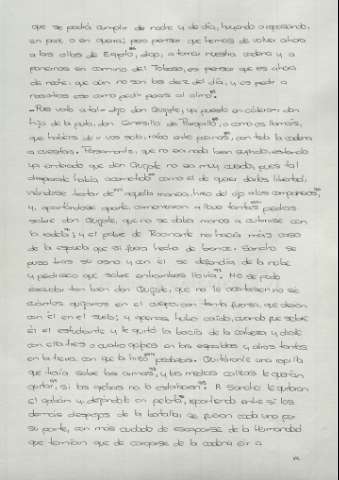 que se podrá cumplir de noche y de día, huyendo o reposando,
en paz o en guerra; pero pensar que hemos de volver ahora
a las ollas de Egipto, digo, a tomar nuestra cadena y a
ponernos en camino del Toboso, es pensar que es ahora
de noche, que aún no son las diez del día, y es pedir a
nosotros eso como pedir peras al olmo.
-Pues voto a tal -dijo don Quijote, ya puesto en cólera-, don
hijo de la puta, don Ginesillo de Paropillo, o como os llamáis,
que habéis de ir vos solo, rabo entre piernas, con toda la cadena
a cuestas. Pasamonte, que no era nada bien sufrido, estando
ya enterado que don Quijote no era muy cuerdo, pues tal
disparate había acometido como el de querer darles libertad,
viéndose tratar de aquella manera, hizo del ojo a los compañeros,
y, apartándose aparte, comenzaron a llover tantas piedras
sobre don Quijote, que no se daba manos a cubrirse con
la rodela; y el pobre de Rocinante no hacía más caso
de la espuela que si fuera hecho de bronce. Sancho se
puso tras su asno y con él se defendía de la nube
y pedrisco que sobre entrambos llovía. No se pudo
escudar tan bien don Quijote, que no le acertasen no sé
cuántos guijarros en el cuerpo, con tanta fuerza, que dieron
con él en el suelo; y apenas hubo caído, cuando fue sobre
él el estudiante y le quitó la bacía de la cabeza y diole
con ella tres o cuatro golpes en las espaldas y otros tantos
en la tierra, con que la hizo pedazos. Quitáronle una ropilla
que traía sobre las armas, y las medias calzas le querían
quitar, si las grebas no lo estorbaran. A Sancho le quitaron
el gabán y, dejándole en pelota, repartiendo entre sí los
demás despojos de la batalla, se fueron cada uno por
su parte, con más cuidado de escaparse de la Hermandad
que temían que de cargarse de la cadena e ir a